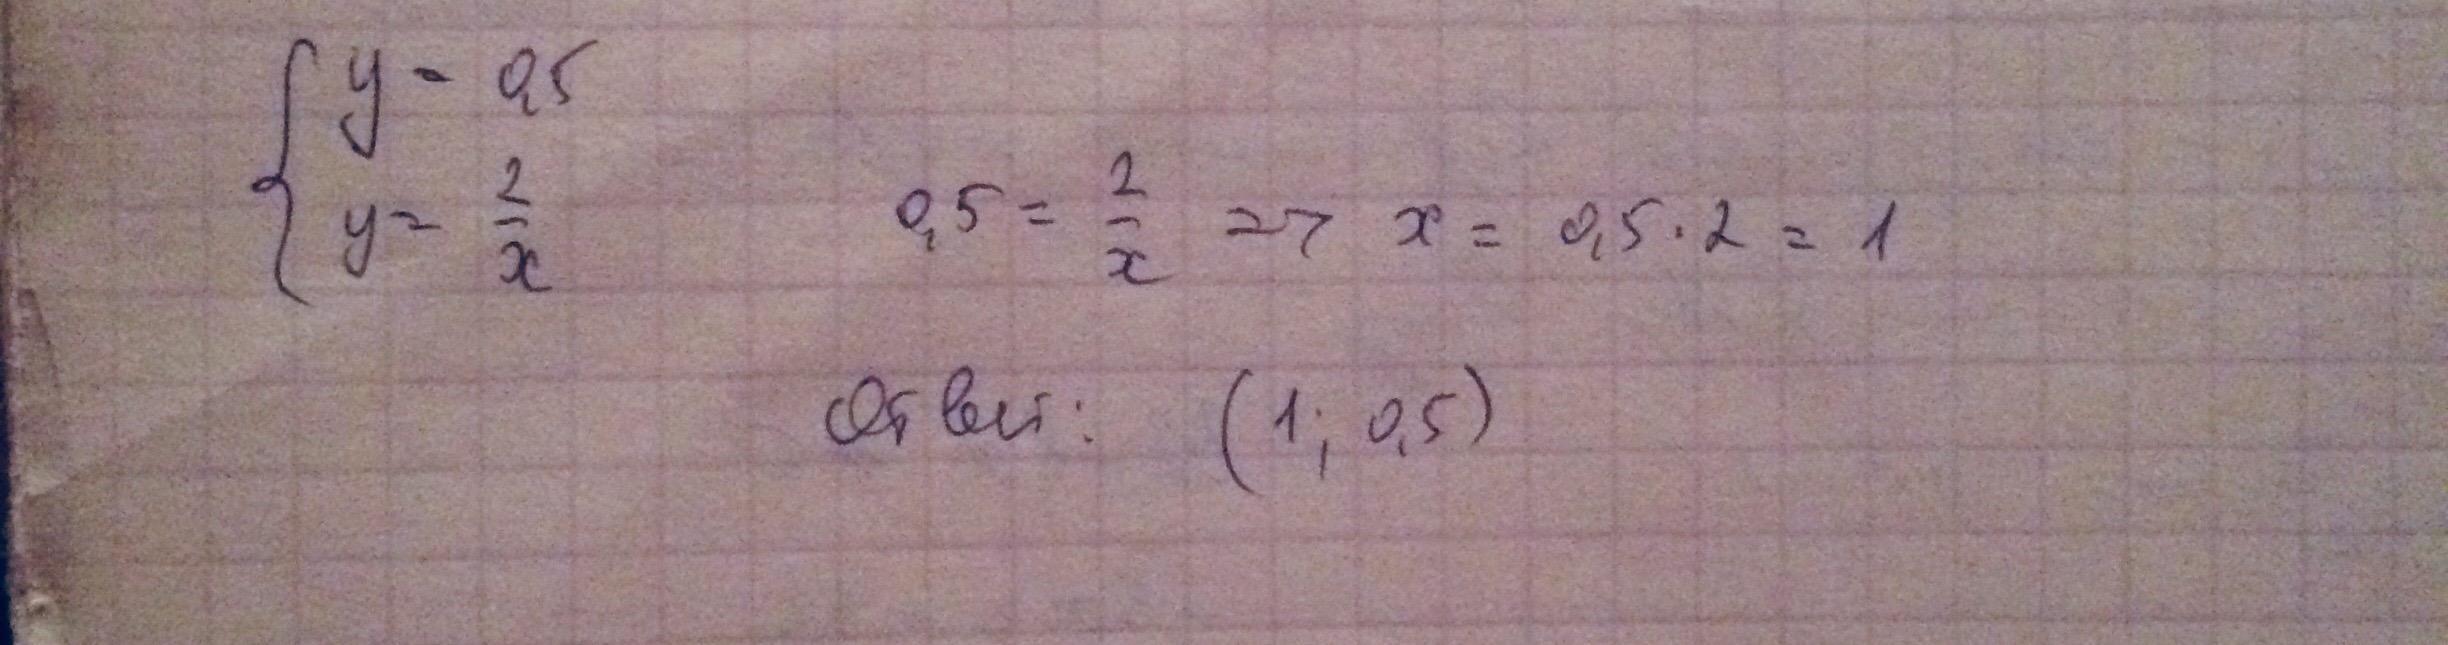 y = 0,5
y = 2/x
0,5 = 2/x => x = 0,5 · 2 = 1
Ответ: (1; 0,5)